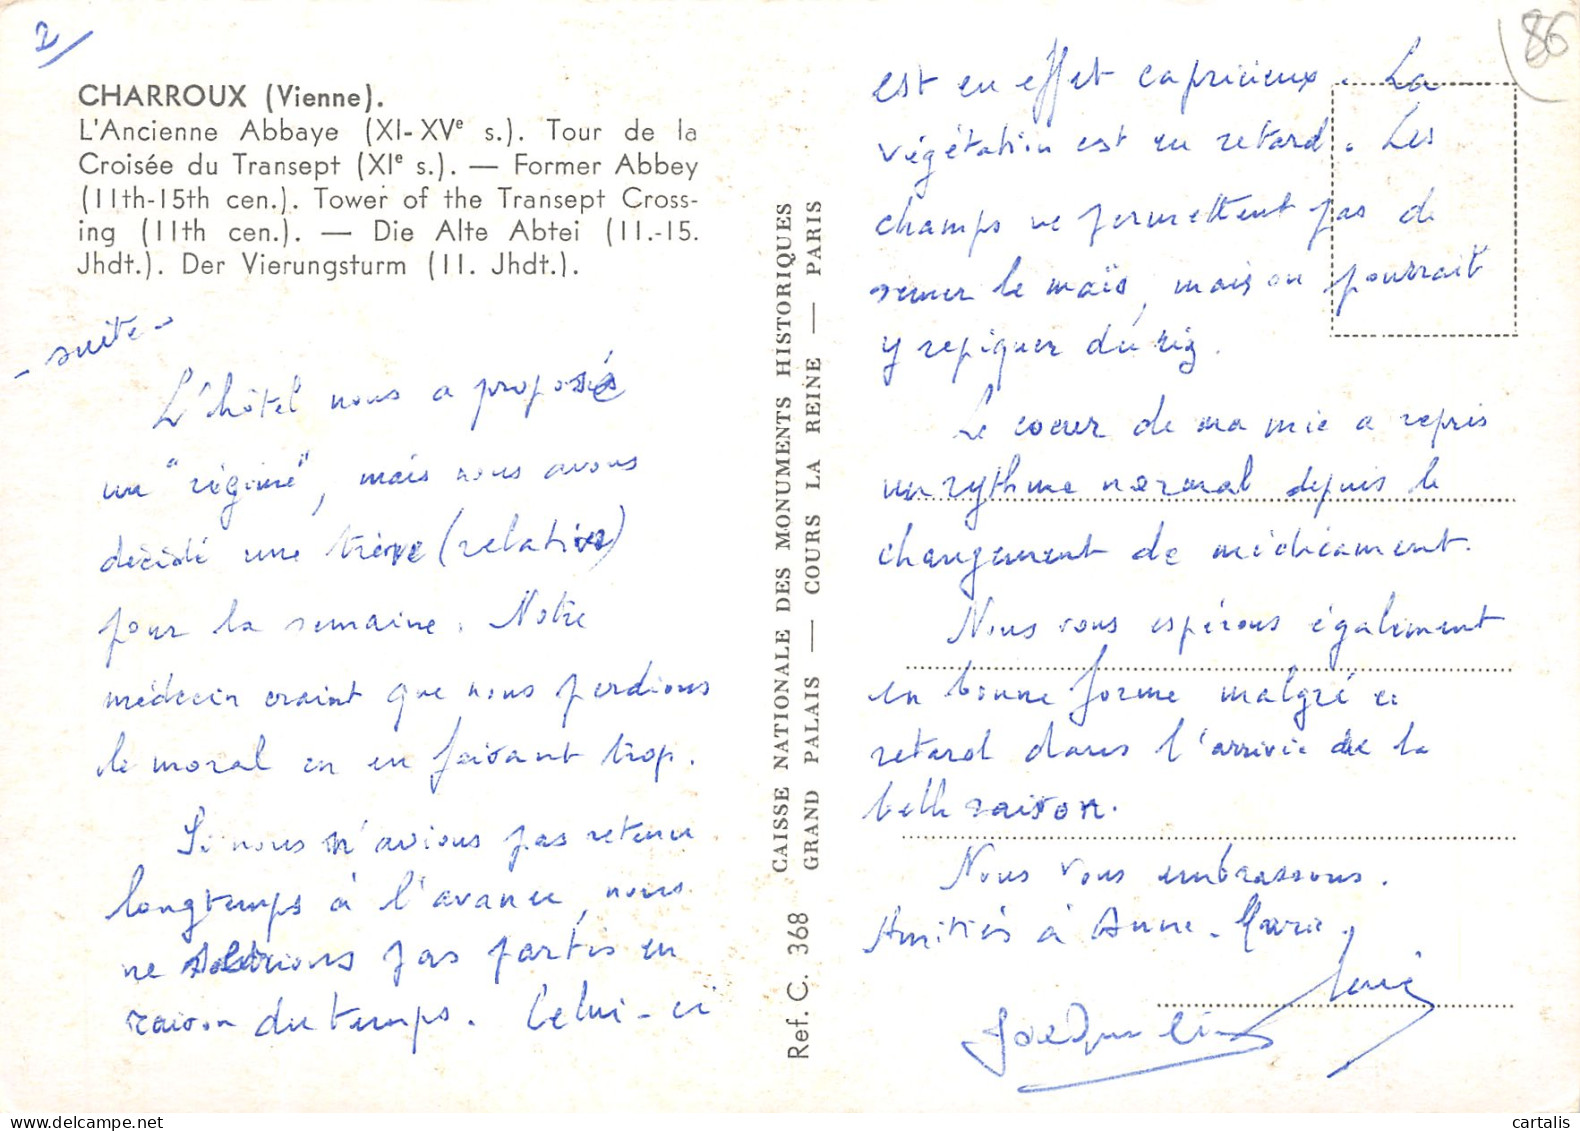 2/
CHARROUX (Vienne).
L'Ancienne Abbaye (XI-XVe s.). Tour de la
Croisée du Transept (XIe s.). — Former Abbey
(11th-15th cen.). Tower of the Transept Cross-
ing (11th cen.). — Die Alte Abtei (11.-15.
Jhdt.). Der Vierungsturm (11. Jhdt.).
- suite -
L'hôtel nous a proposé
un "régime", mais nous avons
décidé une trève (relative)
pour la semaine. Notre
médecin craint que nous perdions
le moral en en faisant trop.
Si nous n'avions pas retenu
longtemps à l'avance, nous
ne serions pas partis en
raison du temps. Celui-ci
CAISSE NATIONALE DES MONUMENTS HISTORIQUES
GRAND PALAIS — COURS LA REINE — PARIS
Ref. C. 368
86
est en effet capricieux. La
végétation est en retard. Les
champs ne permettent pas de
semer le maïs, mais on pourrait
y repiquer du riz.
Le coeur de ma mie a repris
un rythme normal depuis le
changement de médicament.
Nous vous espérons également
en bonne forme malgré ce
retard dans l'arrivée de la
belle saison.
Nous vous embrassons.
Amitiés à Anne-Marie.
Jacqueline